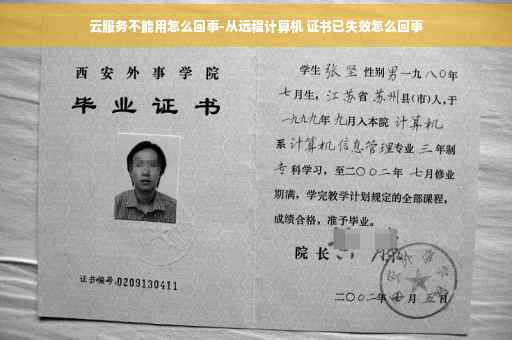 云服务不能用怎么回事-从远程计算机 证书已失效怎么回事
西安外事学院
毕业证书
证书编号:0209130411
学生 张坚 性别男一九八〇年
七月生,江苏省苏州县(市)人,于
一九九九年九月入本院 计算机
系计算机信息管理专业 三年制
专科学习,至二〇〇二年 七月修业
期满,学完教学计划规定的全部课程,
成绩合格,准予毕业。
院长
二〇〇二年 月五日